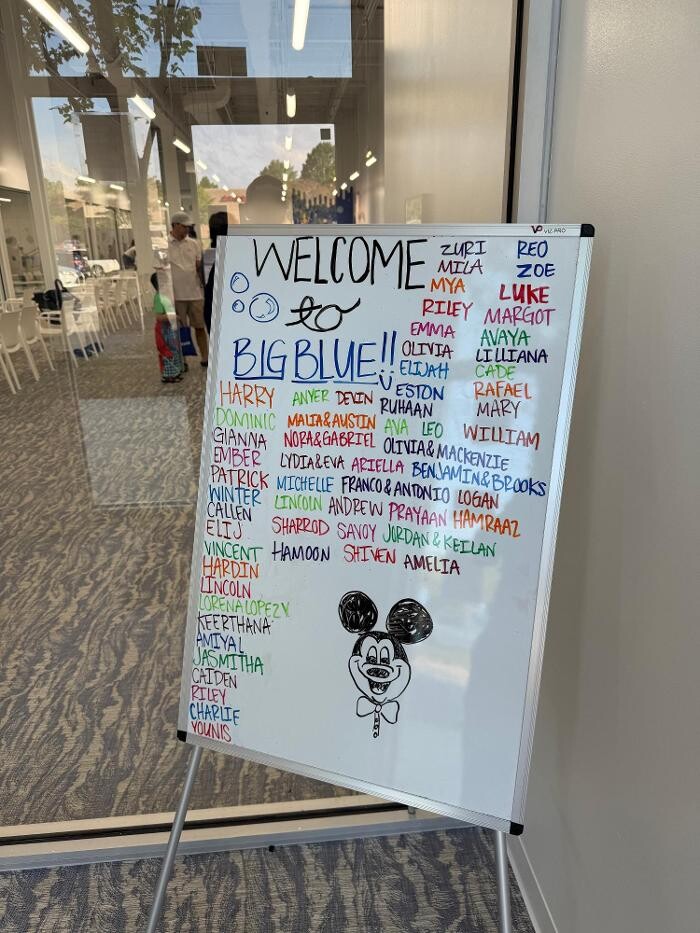 VIZ-PRO
WELCOME
to
BIG BLUE!!
ZURI REO
MILA ZOE
MYA LUKE
RILEY MARGOT
EMMA AVAYA
OLIVIA LILLIANA
ELIJAH CADE
ESTON RAFAEL
RUHAAN MARY
HARRY ANYER DEVIN
DOMINIC MALIA & AUSTIN AVA LEO WILLIAM
GIANNA NORA & GABRIEL OLIVIA & MACKENZIE
EMBER LYDIA & EVA ARIELLA BENJAMIN & BROOKS
PATRICK MICHELLE FRANCO & ANTONIO LOGAN
WINTER LINCOLN ANDREW PRAYAAN HAMRAAZ
CALLEN SHARROD SAVOY JORDAN & KEILAN
ELIJ HAMOON SHIVEN AMELIA
VINCENT
HARDIN
LINCOLN
LORENA LOPEZ Y
KEERTHANA
AMIYAL
JASMITHA
CAIDEN
RILEY
CHARLIE
YOUNIS